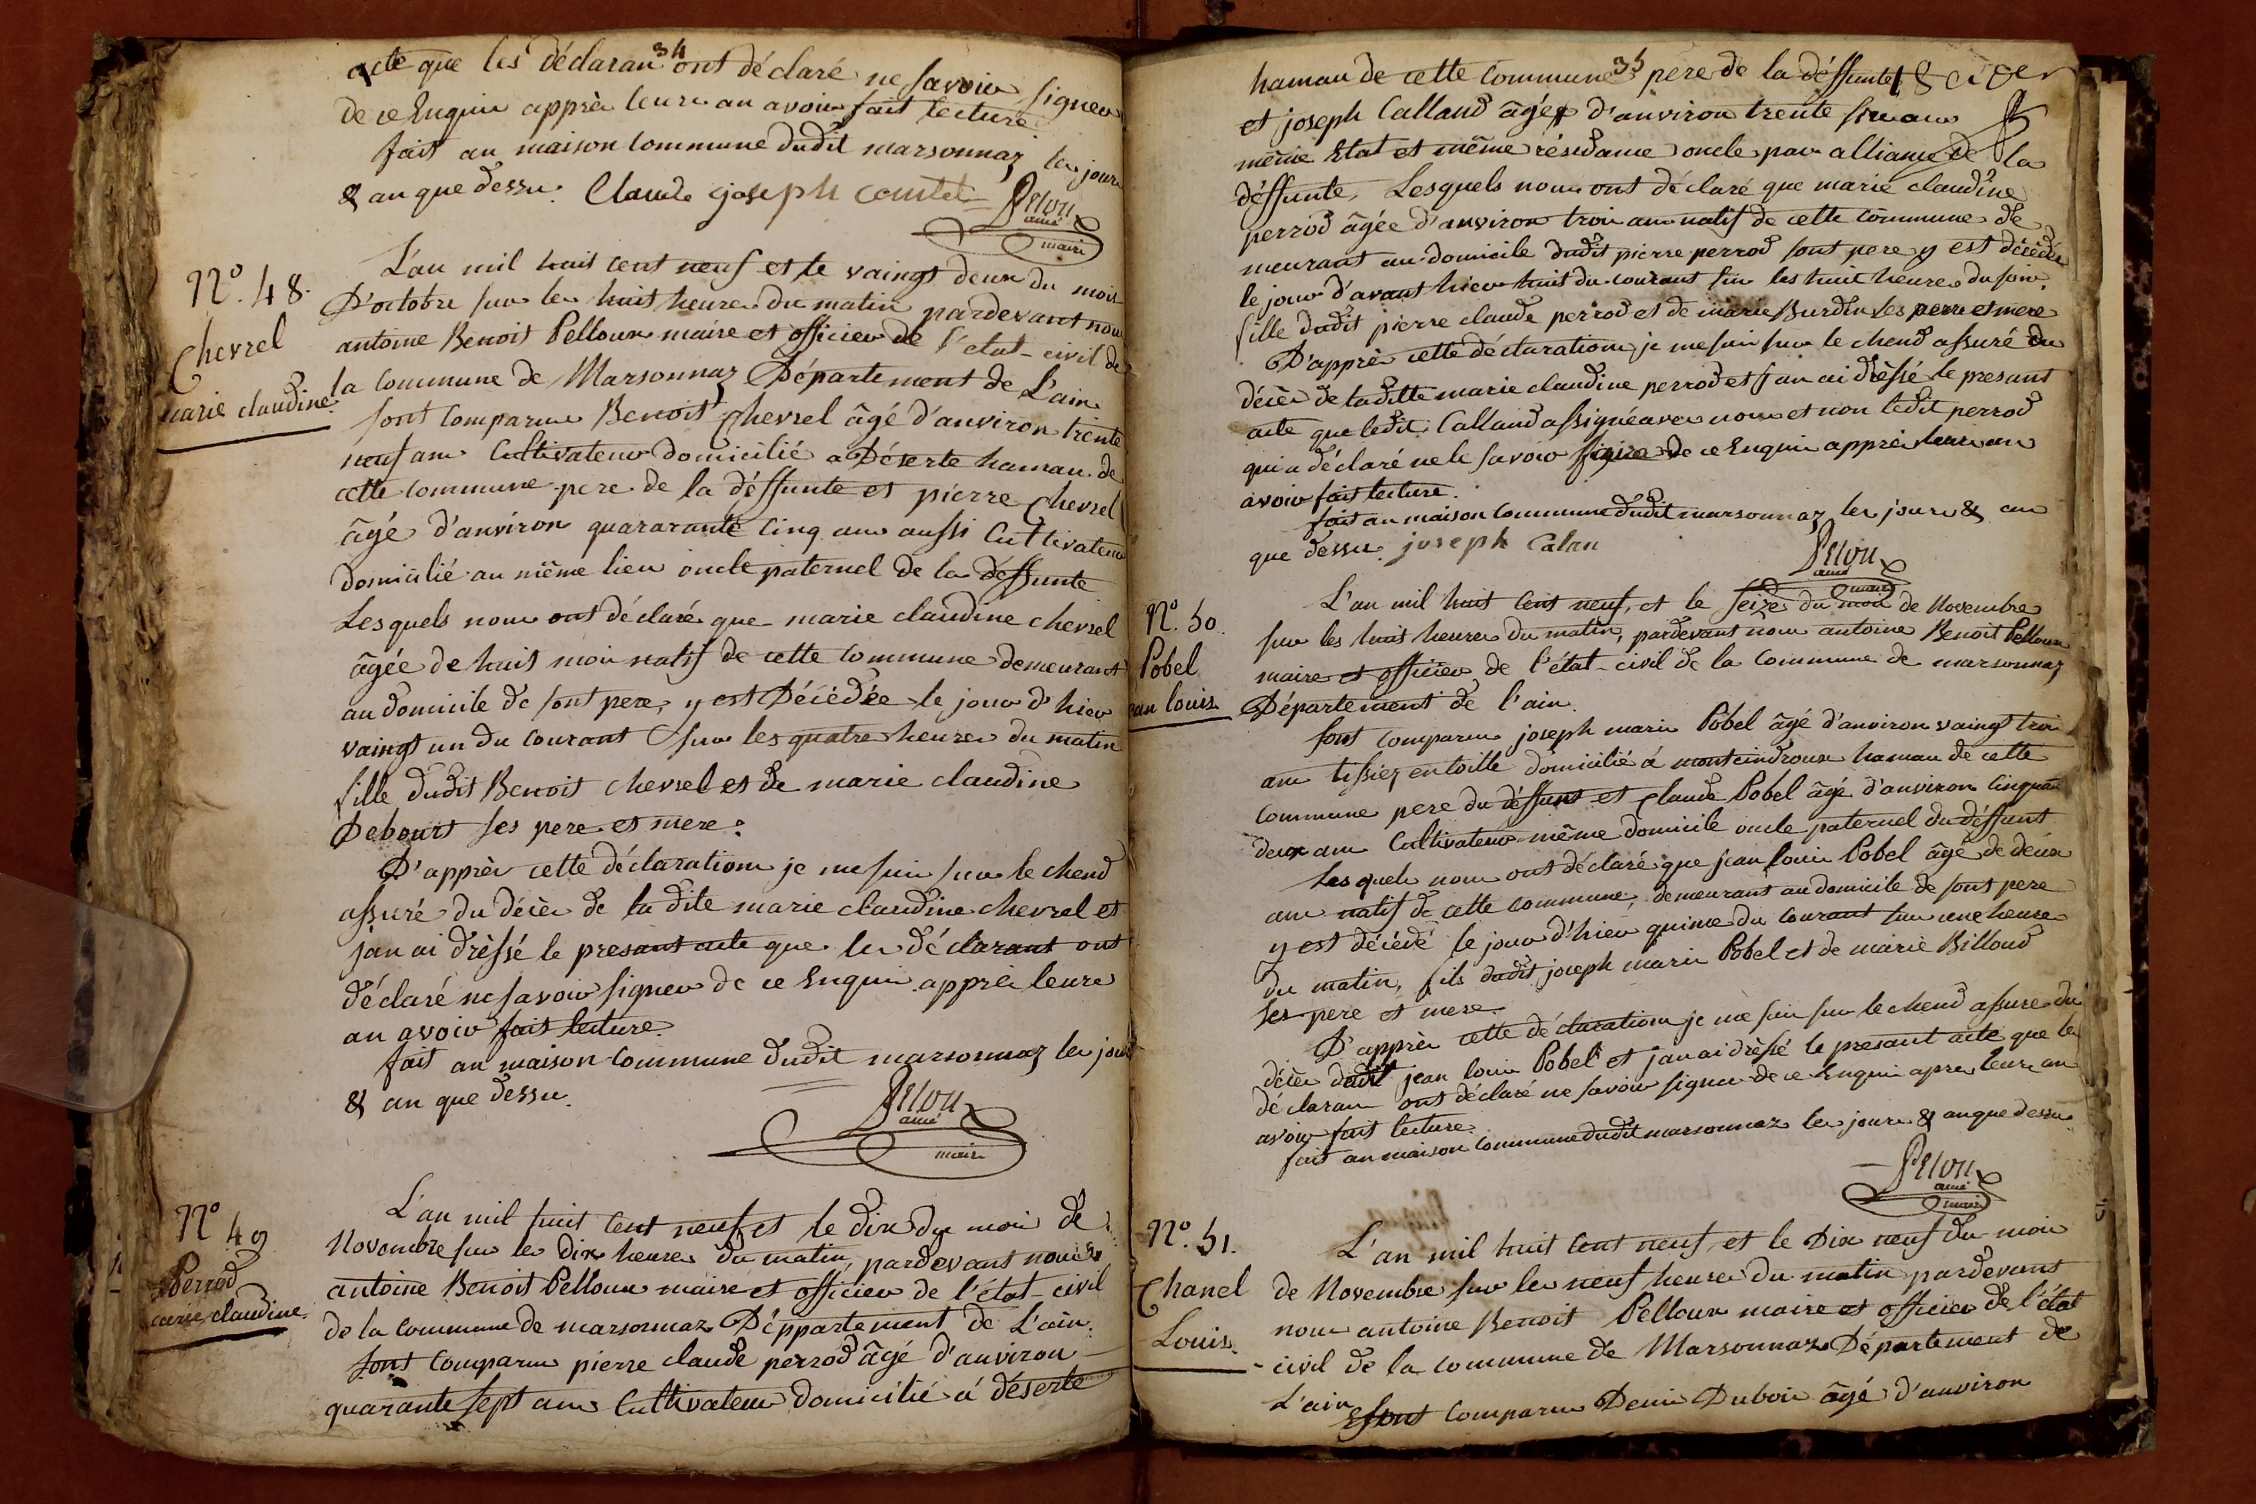 34
acte que les déclarans ont déclaré ne savoir signer
de ce Enquis apprès leurs an avoir fait lecture
fait an maison commune dudit marsonnaz les jours
& an que dessu. Claude joseph comtet Pelou
ainé
maire
N°. 48.
Chevrel
marie claudine
L'an mil huit cent neuf et le vaingt deux du mois
D'octobre sur les huit heures du matin pardevant nous
antoine Benoit Pelloux maire et officier de l'etat-civil de
la commune de Marsonnaz Département de L'ain
sont comparus Benoit Chevrel âgé d'anviron trente
neuf ans Cultivateur domicilié a Déserte hamau de
cette commune pere de la déffunte et pierre Chevrel
âgé d'anviron quararante cinq ans aussi Cultivateur
domicilié au même lieu oncle paternel de la déffunte
Lesquels nous ont déclaré que marie claudine chevrel
âgée de huit mois natif de cette commune demeurant
au domicile de sont pere, y est Décédée le jour d'hier
vaingt un du courant sur les quatre heures du matin
fille dudit Benoit chevrel et de marie claudine
Debourt ses pere et mere.
D'apprès cette déclarationn je me suis sur le chend
assuré du décès de la dite marie claudine chevrel et
j'an ai drèssé le presant acte que les déclarant ont
déclaré ne savoir signer de ce Enquis apprès leurs
an avoir fait lecture.
fait an maison commune dudit marsonnaz les jours
& an que dessu.
Pelou
ainé
maire
N° 49
Perrod
marie claudine
L'an mil huit cent neuf et le dix du mois de
Novembre sur les Dix heures du matin, pardevant nous
antoine Benoit Pelloux maire et officier de l'état-civil
de la commune de marsonnaz Déppartement de L'ain.
sont comparus pierre claude perrod âgé d'anviron
quarante sept ans Cultivateur domicilié á déserte
35
hamau de cette commune pere de la déffunte
et joseph Calland âgé d'anviron trente six ans
même Etat et même résidance oncle par alliance de la
déffunte, Lesquels nous ont déclaré que marie claudine
perrod âgée d'anviron trois ans natif de cette commune de
meurant au domicile dudit pierre perrod sont pere y est décédée
le jour d'avant hier huit du courant sur les huit heures du soir.
fille dudit pierre claude perrod et de marie Burdin ses pere et mere
D'apprès cette déclarationn je me suis sur le chend assuré du
décès de ladite marie claudine perrod et j'an ai drèssé le presant
acte que ledit Calland a signé avec nous et non ledit perrod
qui a déclaré ne le savoir faire de ce Enquis apprès leurs an
avoir fait lecture.
fait an maison commune dudit marsonnaz les jours & an
que dessu. joseph Calan
Pelou
ainé
maire
N°. 50.
Pobel
jean louis
L'an mil huit cent neuf, et le seize du mois de Novembre
sur les huit heures du matin, pardevant nous antoine Benoit Pelloux
maire et officier de l'état-civil de la commune de marsonnaz
Département de l'ain.
sont comparus joseph marie Pobel âgé d'anviron vaingt trois
ans tissiez en toille domicilié á montcindroux hamau de cette
commune pere du déffunt et claude Pobel âgé d'anviron cinquante
deux ans Cultivateur même domicile oncle paternel du déffunt
Lesquels nous ont déclaré que jean louis Pobel âgé de deux
ans natif de cette commune, demeurant au domicile de sont pere
y est décédé le jour d'hier quinze du courant sur une heure
du matin, fils dudit joseph marie Pobel et de marie Billoud
ses pere et mere.
D'apprès cette déclarationn je me suis sur le chend assuré du
décès dudit jean louis Pobel et j'an ai drèssé le presant acte que les
déclarans ont déclaré ne savoir signer de ce Enquis apres leurs an
avoir fait lecture.
fait an maison commune dudit marsonnaz les jours & an que dessu.
Pelou
ainé
maire
N°. 51.
Chanel
Louis.
L'an mil huit cent neuf, et le Dix neuf du mois
de Novembre sur les neuf heures du matin pardevant
nous antoine Benoit Pelloux maire et officier de l'état
civil de la commune de Marsonnaz Département de
L'ain
sont comparus Denis Dubois âgé d'anviron